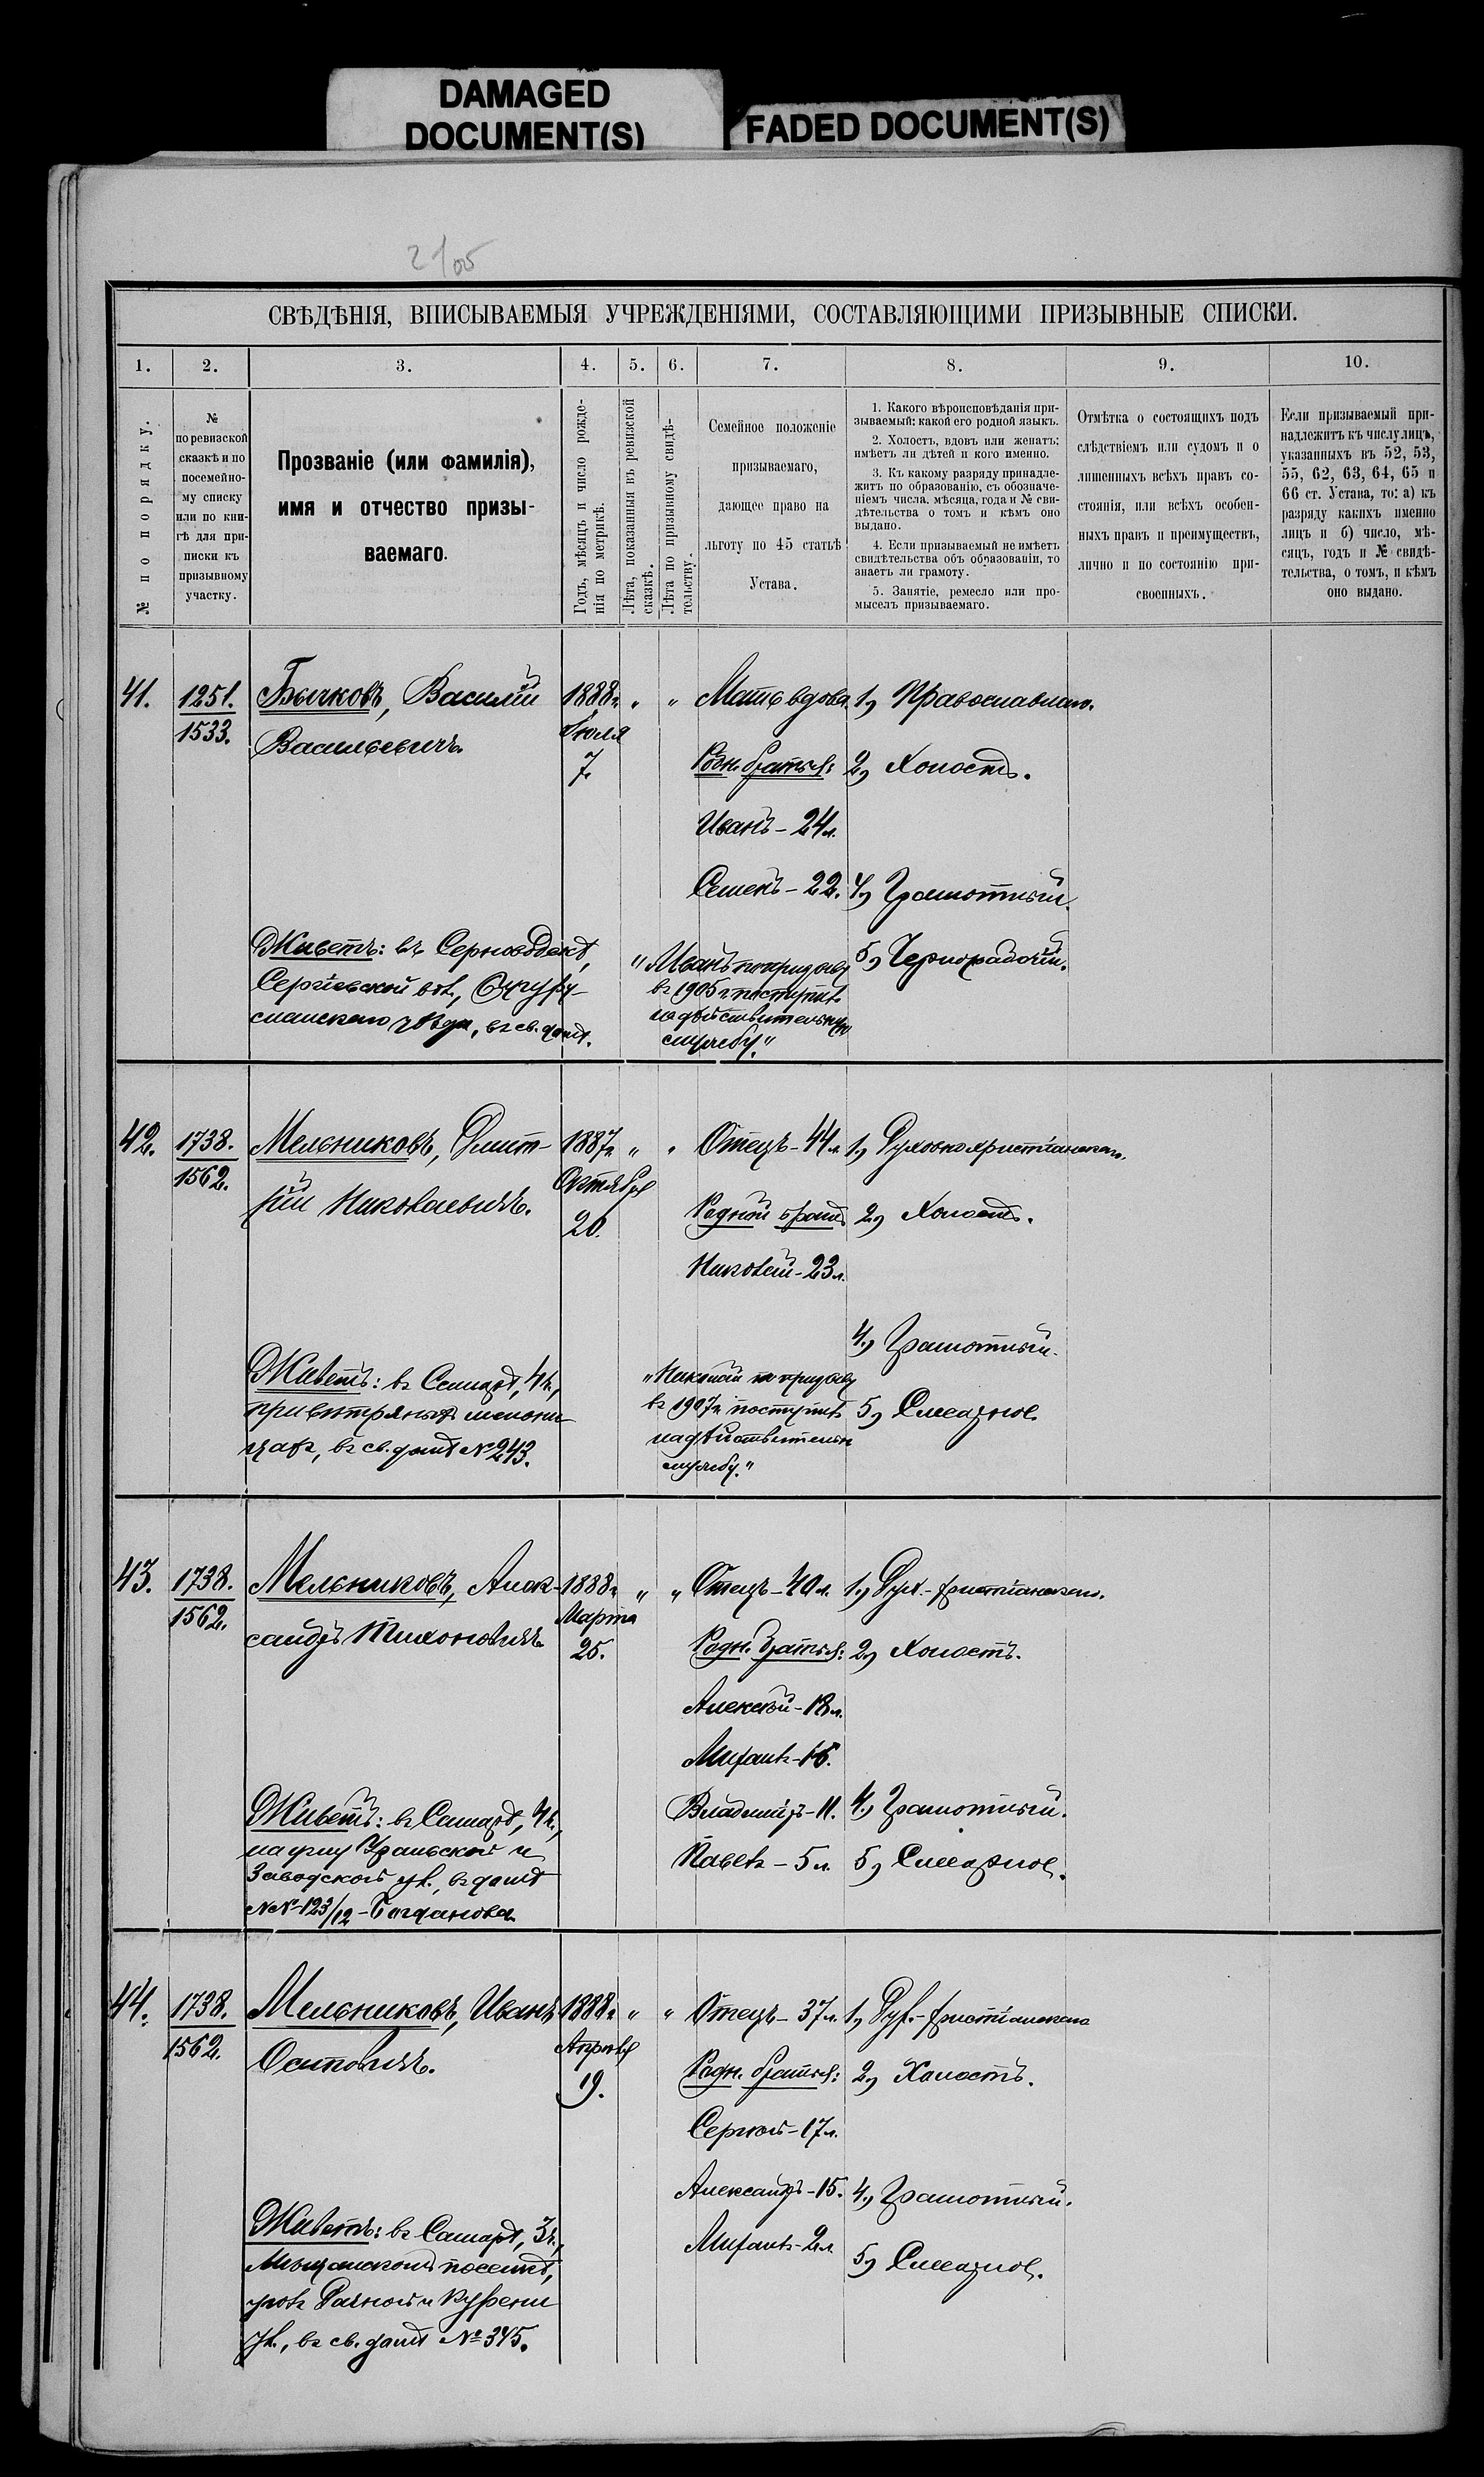 DAMAGED
DOCUMENT(S)
FADED DOCUMENT(S)
СВѢДѢНІЯ, ВПИСЫВАЕМЫЯ УЧРЕЖДЕНІЯМИ, СОСТАВЛЯЮЩИМИ ПРИЗЫВНЫЕ СПИСКИ.
1. 2. 3. 4. 5. 6. 7. 8. 9. 10.
№ по порядку.
№
по ревизской
сказкѣ и по
посемейно-
му списку
или по кни-
гѣ для при-
писки къ
призывному
участку.
Прозваніе (или фамилія),
имя и отчество призы-
ваемаго.
Годъ, мѣсяцъ и число рожде-
нія по метрикѣ.
Лѣта, показанныя въ ревизской
сказкѣ.
Лѣта по призывному свидѣ-
тельству.
Семейное положеніе
призываемаго,
дающее право на
льготу по 45 статьѣ
Устава.
1. Какого вѣроисповѣданія при-
зываемый: какой его родной языкъ.
2. Холостъ, вдовъ или женатъ:
имѣетъ ли дѣтей и кого именно.
3. Къ какому разряду принадле-
житъ по образованію, съ обозначе-
ніемъ числа, мѣсяца, года и № сви-
дѣтельства о томъ и кѣмъ оно
выдано.
4. Если призываемый не имѣетъ
свидѣтельства объ образованіи, то
знаетъ ли грамоту.
5. Занятіе, ремесло или про-
мыселъ призываемаго.
Отмѣтка о состоящихъ подъ
слѣдствіемъ или судомъ и о
лишенныхъ всѣхъ правъ со-
стоянія, или всѣхъ особен-
ныхъ правъ и преимуществъ,
лично и по состоянію при-
своенныхъ.
Если призываемый при-
надлежитъ къ числу лицъ,
указанныхъ въ 52, 53,
55, 62, 63, 64, 65 и
66 ст. Устава, то: а) къ
разряду какихъ именно
лицъ и б) число, мѣ-
сяцъ, годъ и № свидѣ-
тельства, о томъ, и кѣмъ
оно выдано.
41.
1251.
1533.
Бычковъ, Василій
Васильевичъ.
Живетъ: въ Серноводскѣ,
Сергіевской вол., Бугуру-
сланскаго уѣзда, въ св. домѣ.
1888 г.
Іюля
7.
" "
Мать вдова.
Родн. братья:
Иванъ - 24 л.
Семенъ - 22.
"Иванъ по призыву
въ 1905 г. поступилъ
на дѣйствительную
службу."
1) Православнаго.
2) Холостъ.
4) Грамотный.
5) Чернорабочій.
42.
1738.
1562.
Мельниковъ, Дмит-
рій Николаевичъ.
Живетъ: въ Самарѣ, 4 ч.,
при вѣтряныхъ мельни-
цахъ, въ св. домѣ № 243.
1887 г.
Октября
26.
" "
Отецъ - 44 л.
Родной братъ
Николай - 23 л.
"Николай по призыву
въ 1907 г. поступилъ
на дѣйствительн
службу."
1) Духовно христіанскаго.
2) Холостъ.
4) Грамотный.
5) Слесарное.
43.
1738.
1562.
Мельниковъ, Алек-
сандръ Тихоновичъ
Живетъ: въ Самарѣ, 4 ч.,
на углу Уральской и
Заводской ул., въ домѣ
№№ 123/12 - Богданова
1888 г.
Марта
25.
" "
Отецъ - 40 л.
Родн. братья:
Алексѣй - 18 л.
Михаилъ - 16.
Владиміръ - 11.
Павелъ - 5 л.
1) Дух.-христіанскаго.
2) Холостъ.
4) Грамотный.
5) Слесарное.
44.
1738.
1562.
Мельниковъ, Иванъ
Осиповичъ.
Живетъ: въ Самарѣ, 3 ч.,
Мѣщанскомъ поселкѣ,
въ св. домѣ № 345.
1888 г.
Апрѣля
19.
" "
Отецъ - 37 л.
Родн. братья:
Сергѣй - 17 л.
Александръ - 15.
Михаилъ - 2 л.
1) Дух.-христіанскаго
2) Холостъ.
4) Грамотный.
5) Слесарное.